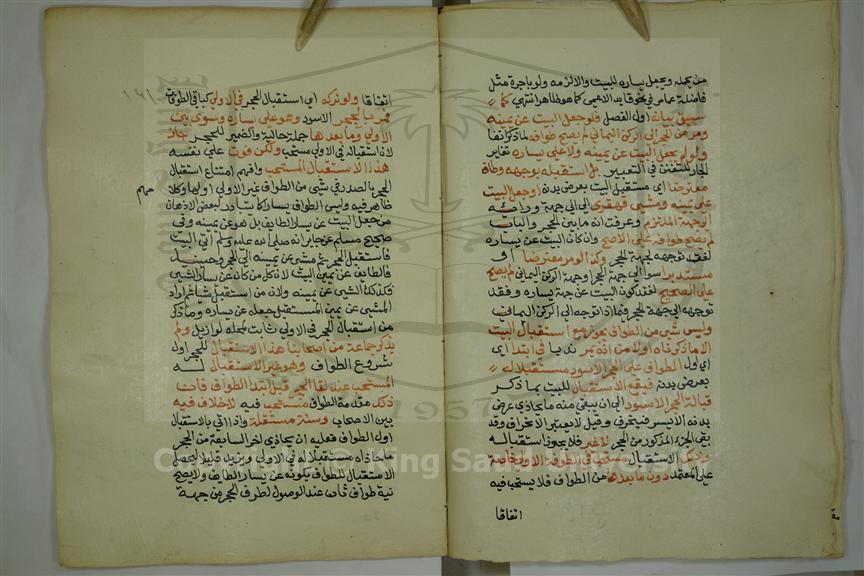 من يحمله ويجعل يساره للبيت والالزمه ولو باجرة مثل
فاضلة عمامر في نحو قايد الاعمى كما هو ظاهر انتهى كما
سبق بيانه اول الفصل فلو جعل البيت عن يمينه
ومر من الحجر الى الركن اليماني لم يصح طوافه لما ذكر آنفا
ولو لم يجعل البيت عن يمينه ولا على يساره تغاير
الجار للتفنن في التعبير بل استقبله بوجهه وطاف
معترضا اي مستقبل البيت بعرض بدنه او جعل البيت
على يمينه ومشى قهقرى الى جهة ورائه
او جهة الملتزم وعرفت انه ما بين الحجر والباب
لم يصح طوافه على الاصح وان كان البيت عن يساره
لفقد توجهه لجهة الحجر وكذا لو مر معترضا او
مستديرا سوا الى جهة الحجر او جهة الركن اليماني لم يصح
على الصحيح لفقد كون البيت عن جهة يساره وفقد
توجهه الى جهة الحجر فيما اذا توجه الى الركن اليماني
وليس شي من الطواف يجوز مع استقبال البيت
الا ما ذكرناه اولا من انه يمر ندبا في ابتدا اي
اي اول الطواف على الحجر الاسود مستقبلا له
بعرض بدنه فيقع الاستقبال للبيت بما ذكر
قبالة الحجر الاسود الى ان يبقى منه ما يحاذي عرض
بدنه الايسر فيتحرف وقيل لا يعتبر الانحراف وقد
بقي الجزء المذكور من الحجر لا غير فلا يجوز استقباله
وذلك الاستقبال مستحب في الطوفة الاولى خاصة
على المعتمد دون ما بعدها من الطواف فلا يستحب فيه
اتفاقا
١٦١
اتفاقا ولو تركه اي استقبال الحجر في الاولى كباقي الطوفات
فمر بالحجر الاسود وهو على يساره وسوى بين
الاولى وما بعدها جملة حالية والضمير للحجر جاز
لان استقباله في الاولى مستحب ولكن فوت على نفسه
هذا الاستقبال المستحب وافهم امتناع استقبال
الحجر بالصدر في شي من الطواف غير الاولى اولها وكلا
مهم
ظاهر فيه وليس الطواف يسارا كما يتبادر لبعض الاذهان
من جعل البيت عن يسار الطايف بل هو عن يمينه وفي
صحيح مسلم عن جابر انه صلى الله عليه وسلم اتى البيت
فاستقبل الحجر ثم مشى عن يمينه الى الحجر وحينئذ
فالطايف عن يمين البيت لان كل من كان عن يسار الشي
فكذلك الشي عن يمينه ولان من استقبل شيا ثم اراد
المشي عن يمين المستقبل جعله عن يساره وما ذكر
من استقبال الحجر في الاولى ثابت لمحله لو ازيل ولم
يذكر جماعة من اصحابنا هذا الاستقبال للحجر اول
شروع الطواف وهو غير الاستقبال له
المستحب عند لقا الحجر قبل ابتدا الطواف فان
ذلك مقدمة الطواف مستحب فيه لا خلاف فيه
بين الاصحاب وسنة مستقلة واذا اتى بالاستقبال
اول الطواف فعليه ان يحاذي اخر السابعة من الحجر
ما حاذاه مستقبلا له في الاولى ويزيد قليلا ليحصل
الاستقبال للطواف بكونه عن يسار الطايف ولا يصح
نية طواف ثان عند الوصول لطرف الحجر من جهة